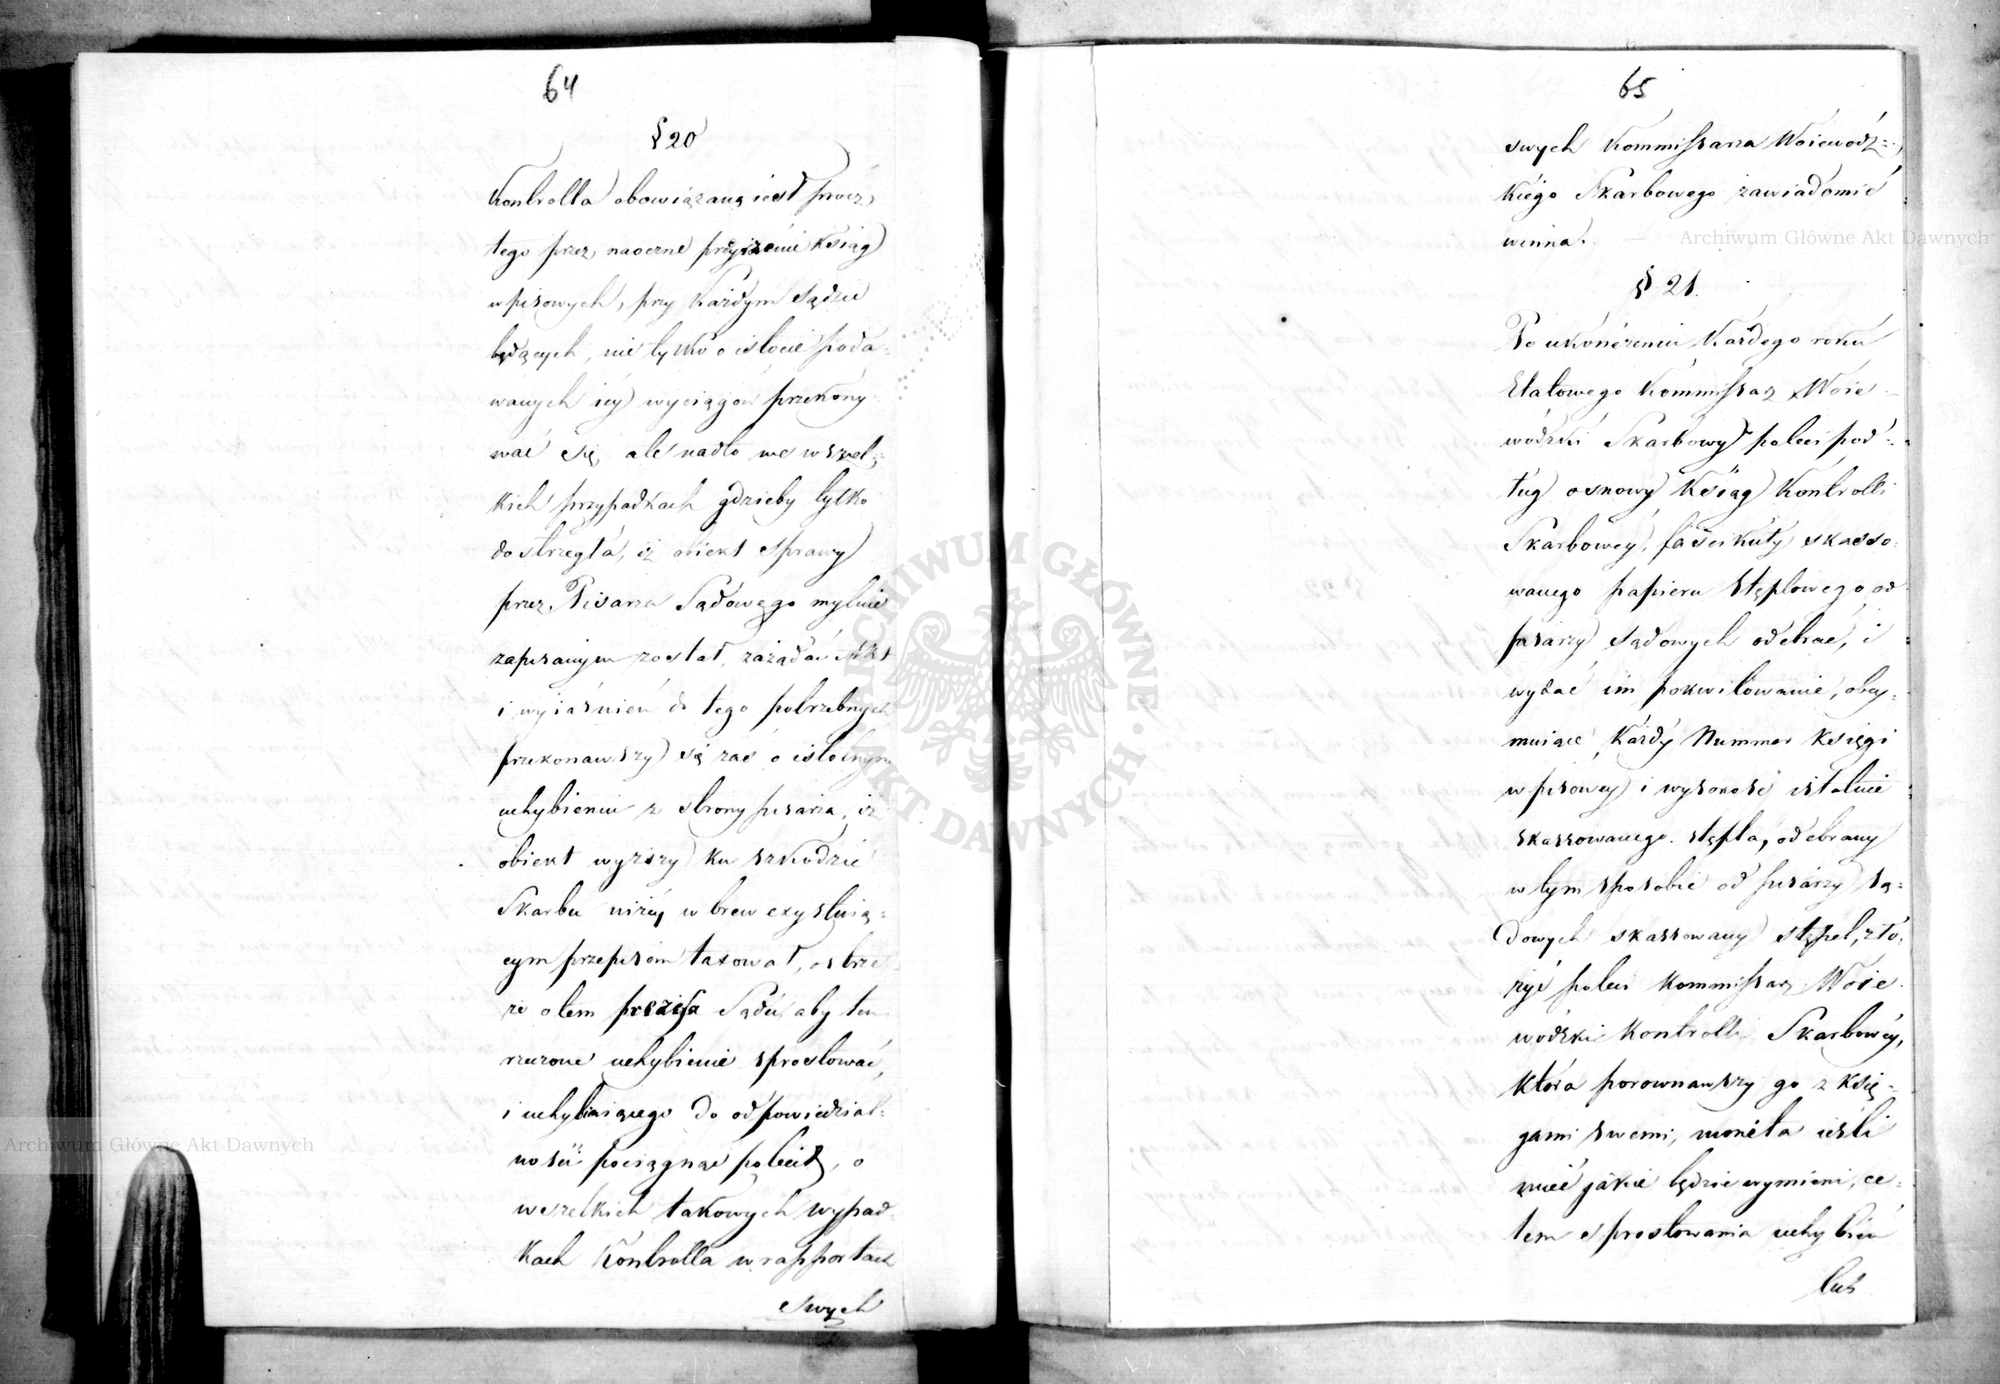 64
§ 20
Kontrolla obowiązaną iest prócz
tego przez naoczne przyirzenie Ksiąg
wpisowych, przy Każdym Sądzie
będących, nie tylko o istocie poda-
wanych iéy wyciągów przekony-
wać się, ale nadto we wszel-
kich przypadkach gdzieby tylko
dostrzegła, iż obiekt sprawy
przez Pisarza Sądowego mylnie
zapisanym został, zażądać Akt
i wyiaśnień do tego potrzebnych
przekonawszy się zaś o istotnym
uchybieniu z strony pisarza, iż
obiekt wyższy ku szkodzie
Skarbu niżéy wbrew exystuią-
cym przepisom taxował, ostrze-
że o tem prezesa Sądu, aby ten
rzeczone uchybienie sprostować,
i uchybiaiącego do odpowiedzial-
ności pociągnąć polecił, o
wszelkich takowych wypad-
kach Kontrolla w rapportach
swych
65
swych Kommissarza Woiewódz-
kiego Skarbowego zawiadomić
winna. —
§ 21.
Po ukończeniu Każdego roku
Etatowego Kommissarz Woie-
wódzki Skarbowy poleci pod-
ług osnowy Ksiąg Kontrolli
Skarbowéy, fascikuły skasso-
wanego papieru stęplowego od
pisarzy Sądowych odebrać, i
wydać im pokwitowanie, obey-
muiące Każdy Nummer Księgi
wpisowéy i wysokość istotnie
skassowanego stępla, odebrany
w tym sposobie od pisarzy Są-
dowych skassowany stępel, zło-
żyć poleci Kommissarz Woie-
wódzki Kontrolli Skarbowéy,
która porownawszy go z Księ-
gami swemi, moneta ieśli
mieć jakie będzie wymieni, ce-
lem sprostowania uchybień
lub
ARCHIWUM GŁÓWNE AKT DAWNYCH
Archiwum Główne Akt Dawnych
Archiwum Główne Akt Dawnych